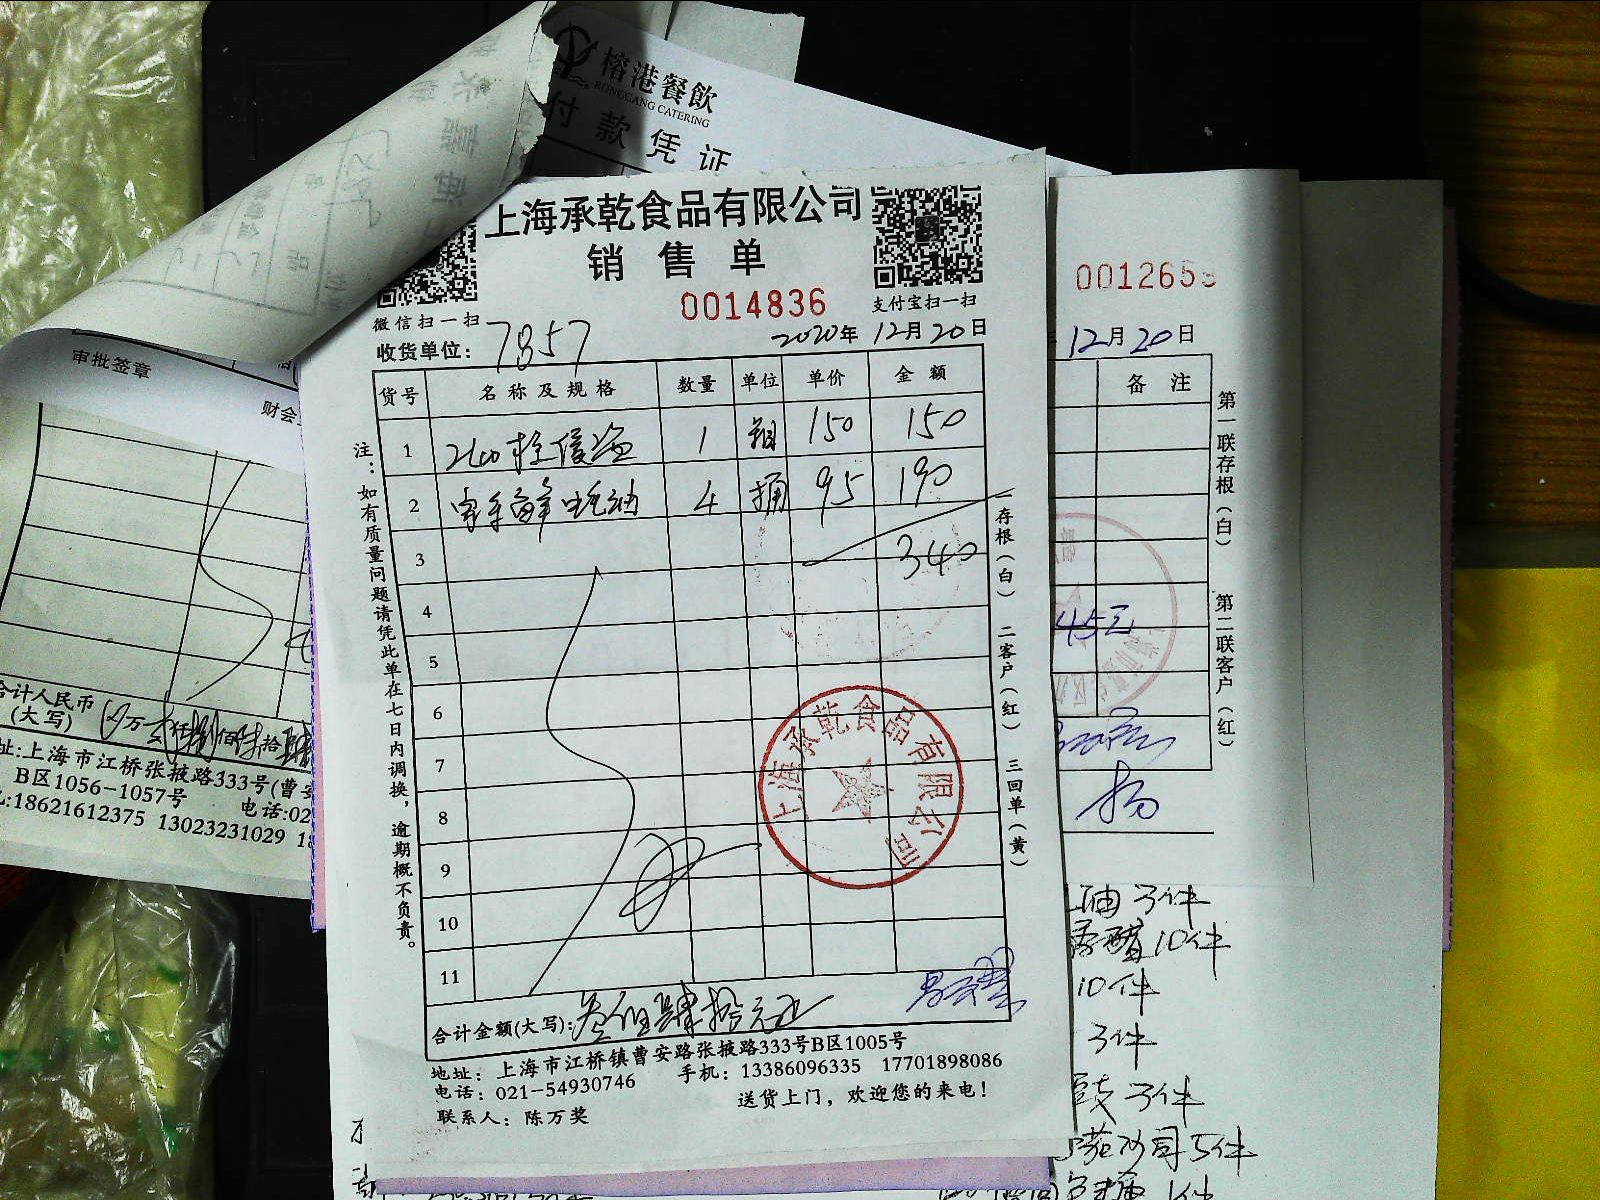 榕港餐飲
RONGGANG CATERING
付款凭证
上海承乾食品有限公司
销售单
0014836
微信扫一扫
支付宝扫一扫
收货单位: 7857
2020年12月20日
货号 名称及规格 数量 单位 单价 金额
1 1 箱 150 150
2 4 桶 95 190
3 340
4
5
6
7
8
9
10
11
合计金额(大写): 叁佰肆拾元正
地址: 上海市江桥镇曹安路张掖路333号B区1005号
电话: 021-54930746 手机: 13386096335 17701898086
联系人: 陈万奖 送货上门,欢迎您的来电!
注:如有质量问题请凭此单在七日内调换,逾期概不负责。
一存根(白) 二客户(红) 三回单(黄)
上海承乾食品有限公司
审批签章
财会
合计人民币
(大写)
址:上海市江桥张掖路333号(曹安
B区1056-1057号 电话:02
:18621612375 13023231029
001265
12月20日
备注
45元
第一联存根(白) 第二联客户(红)
油3件
醋10件
10件
3件
豉3件
5件
1件